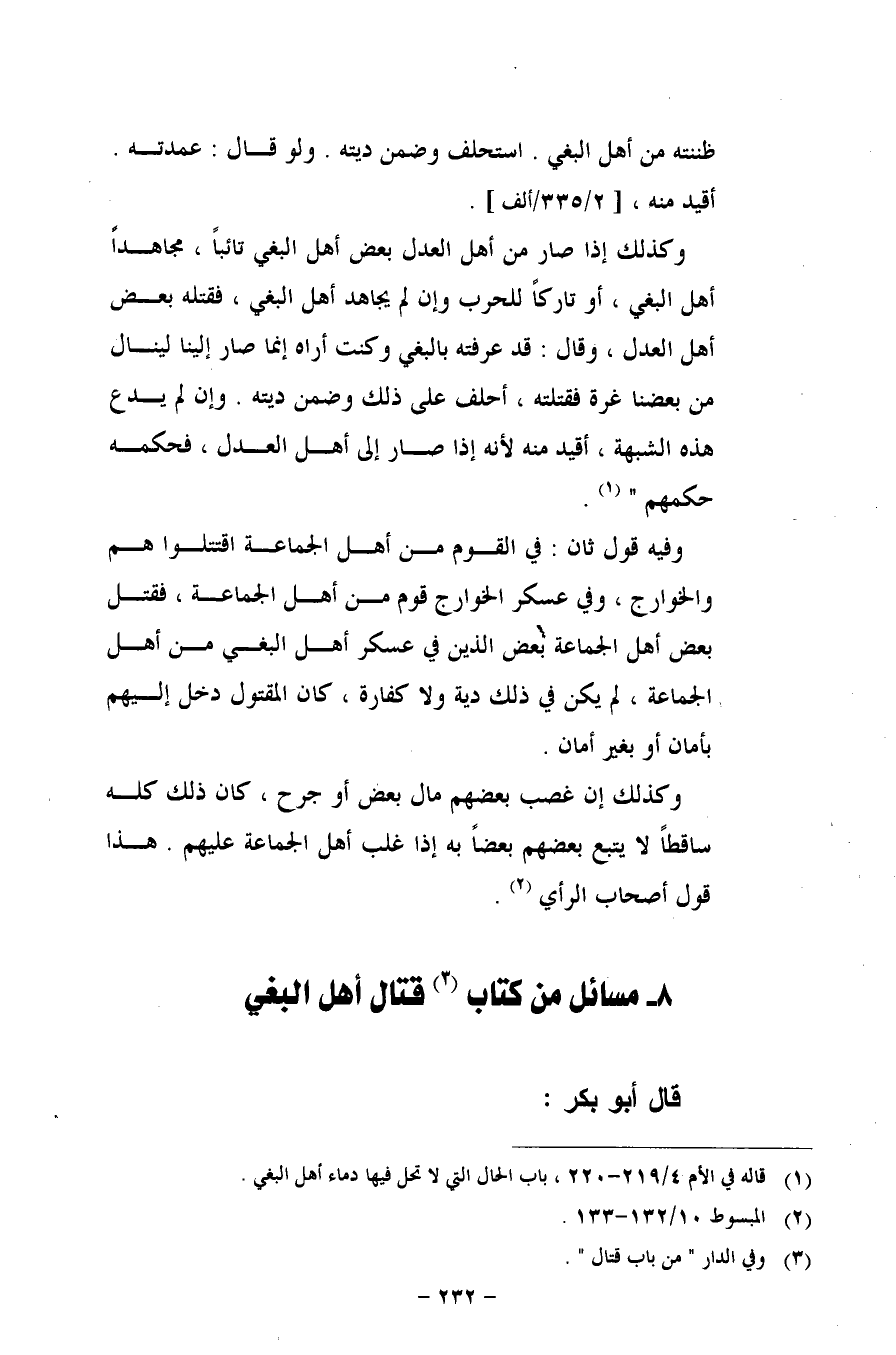 ظننته من أهل البغي . استحلف وضمن ديته . ولو قـــال : عمدتـــه .
أقيد منه ، [ ٣٣٥/٢/ألف ] .
وكذلك إذا صار من أهل العدل بعض أهل البغي تائباً ، مجاهـــداً
أهل البغي ، أو تاركاً للحرب وإن لم يجاهد أهل البغي ، فقتله بعـــض
أهل العدل ، وقال : قد عرفته بالبغي وكنت أراه إنما صار إلينا لينـــال
من بعضنا غرة فقتلته ، أحلف على ذلك وضمن ديته . وإن لم يـــدع
هذه الشبهة ، أقيد منه لأنه إذا صـــار إلى أهـــل العـــدل ، فحكمـــه
حكمهم " (١) .
وفيه قول ثان : في القـــوم مـــن أهـــل الجماعـــة اقتتلـــوا هـــم
والخوارج ، وفي عسكر الخوارج قوم مـــن أهـــل الجماعـــة ، فقتـــل
بعض أهل الجماعة بعض الذين في عسكر أهـــل البغـــي مـــن أهـــل
الجماعة ، لم يكن في ذلك دية ولا كفارة ، كان المقتول دخل إلـــيهم
بأمان أو بغير أمان .
وكذلك إن غصب بعضهم مال بعض أو جرح ، كان ذلك كلـــه
ساقطاً لا يتبع بعضهم بعضاً به إذا غلب أهل الجماعة عليهم . هـــذا
قول أصحاب الرأي (٢) .
٨ـ مسائل من كتاب (٣) قتال أهل البغي
قال أبو بكر :
(١) قاله في الأم ٢١٩/٤-٢٢٠ ، باب الحال التي لا تحل فيها دماء أهل البغي .
(٢) المبسوط ١٣٢/١٠-١٣٣ .
(٣) وفي الدار " من باب قتال " .
- ٢٣٢ -